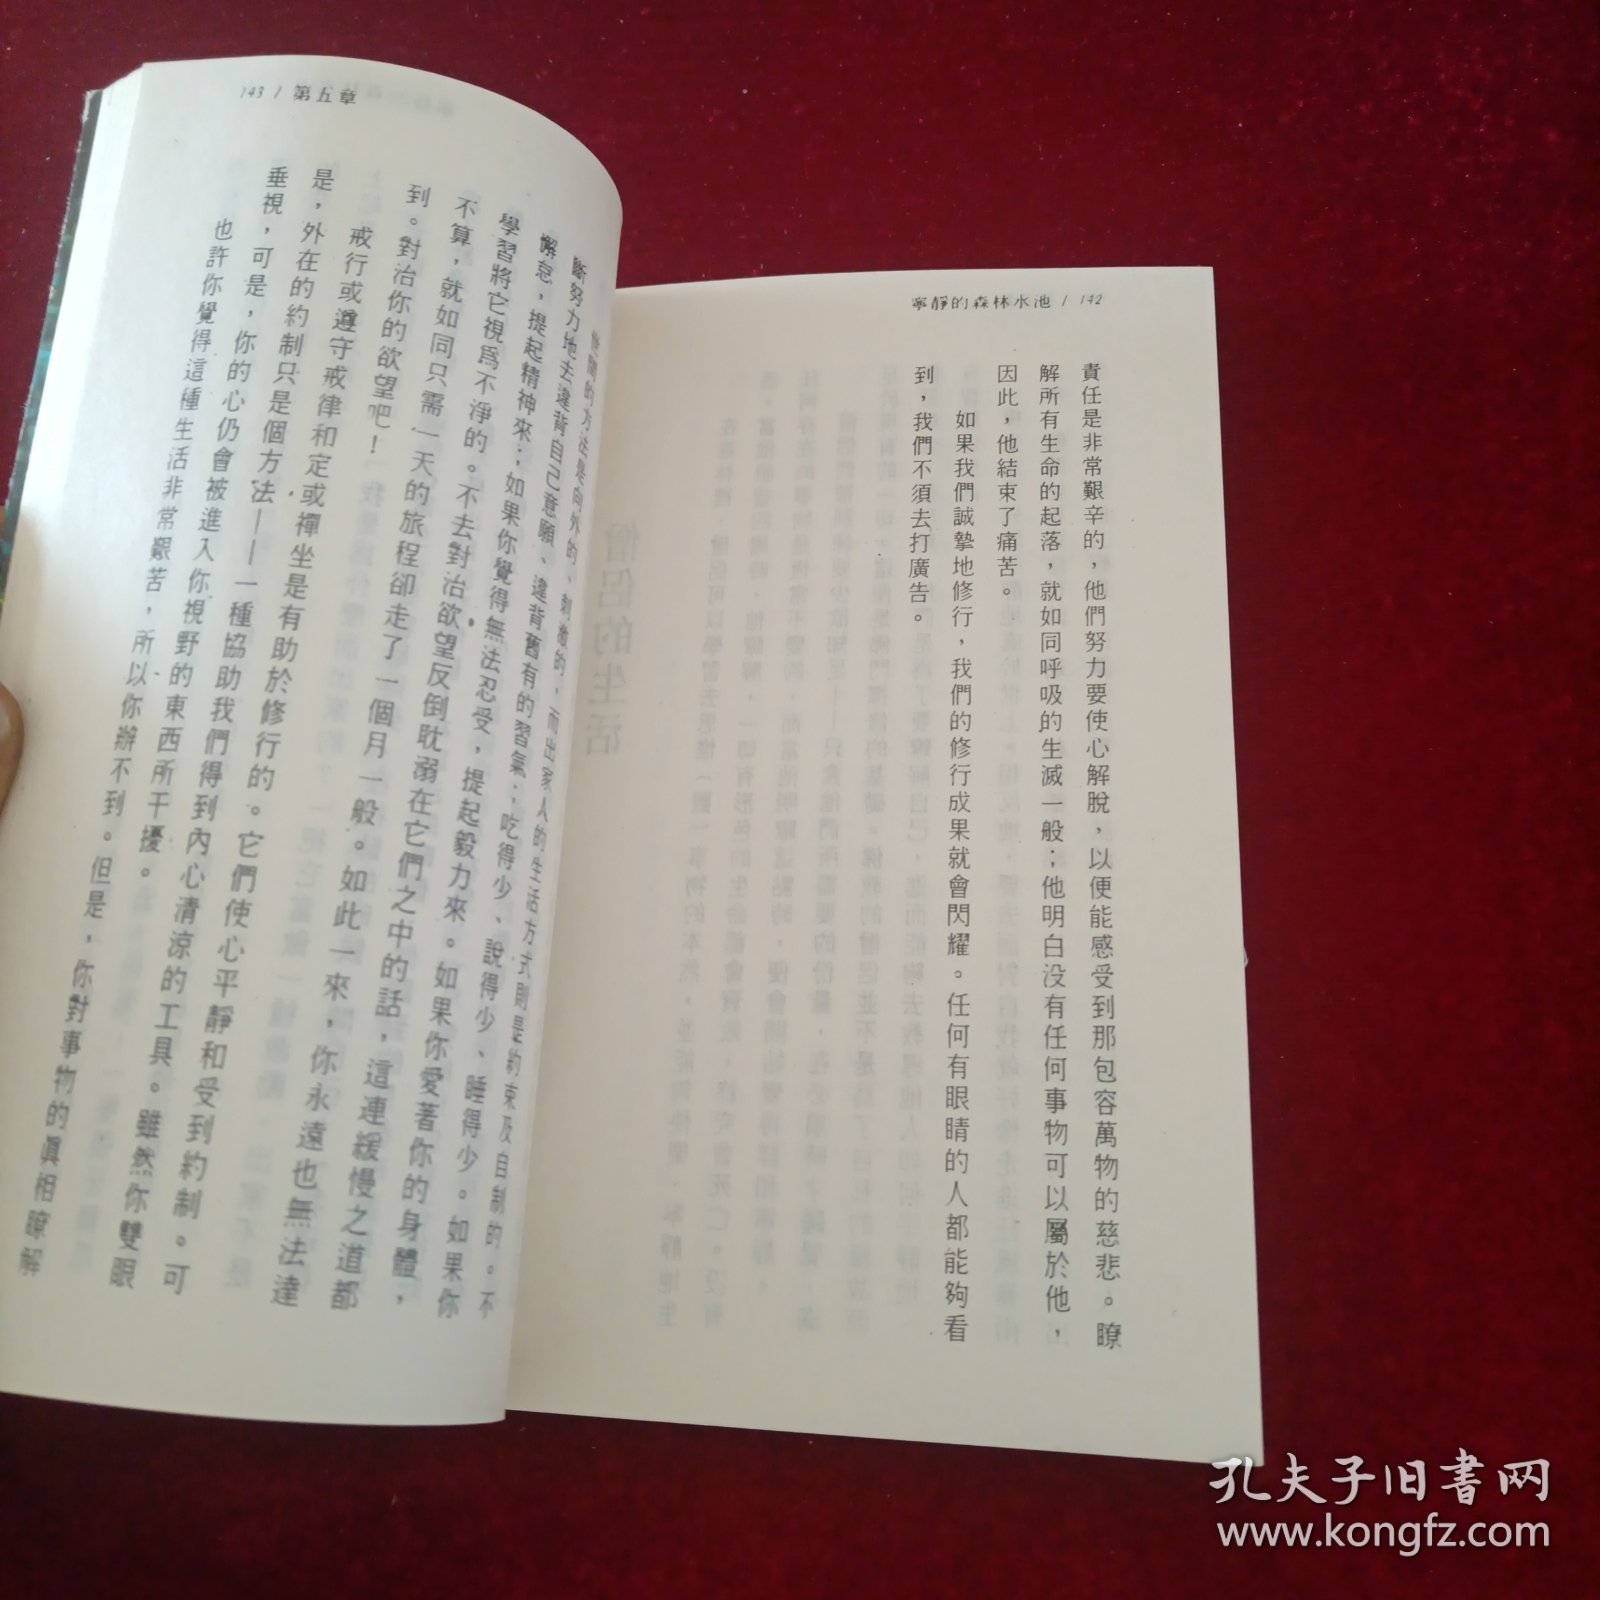 寧靜的森林水池 / 142
責任是非常艱辛的，他們努力要使心解脫，以便能感受到那包容萬物的慈悲。瞭
解所有生命的起落，就如同呼吸的生滅一般；他明白没有任何事物可以屬於他，
因此，他結束了痛苦。
如果我們誠摯地修行，我們的修行成果就會閃耀。任何有眼睛的人都能夠看
到，我們不須去打廣告。
143 / 第五章
世間的方法是向外的、刺激的，而出家人的生活方式則是約束及自制的。不
斷努力地去違背自己意願、違背舊有的習氣；吃得少、說得少、睡得少。如果你
懈怠，提起精神來；如果你覺得無法忍受，提起毅力來。如果你愛著你的身體，
學習將它視爲不淨的。不去對治欲望反倒耽溺在它們之中的話，這連緩慢之道都
不算，就如同只需一天的旅程卻走了一個月一般。如此一來，你永遠也無法達
到。對治你的欲望吧！
戒行或遵守戒律和定或禪坐是有助於修行的。它們使心平靜和受到約制。可
是，外在的約制只是個方法——一種協助我們得到內心清涼的工具。雖然你雙眼
垂視，可是，你的心仍會被進入你視野的東西所干擾。
也許你覺得這種生活非常艱苦，所以你辦不到。但是，你對事物的眞相瞭解
孔夫子旧書网
www.kongfz.com